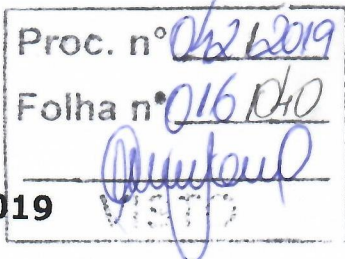 Proc. n° 042/2019
Folha n° 016 040
019
VISTO